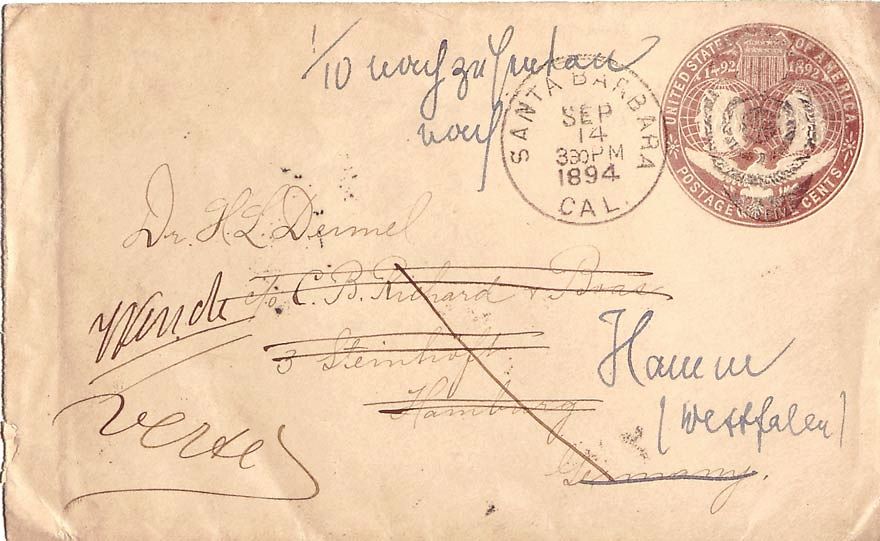 1/10 nachzusenden
nach
UNITED STATES OF AMERICA
1492 1892
POSTAGE FIVE CENTS
SANTA BARBARA
SEP
14
330PM
1894
CAL.
Dr. H. L.
c/o C. B. Richard & Boas
3 Steinhöft
Hamburg
Germany.
Hamm
(Westfalen)